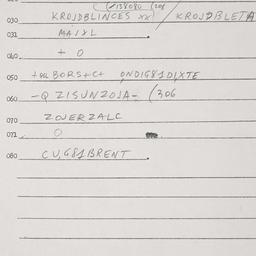 (✓138080 (208
030 KROJDBLINCES XX1 / KROJDBLETA
031 MAJXL
040 + 0
050 BORS+C+ ONDIG81DIXTE
060 -Q ZISUNZOJA- (306
070 ZOJERZALC
071 0
080 CU,G81BRENT